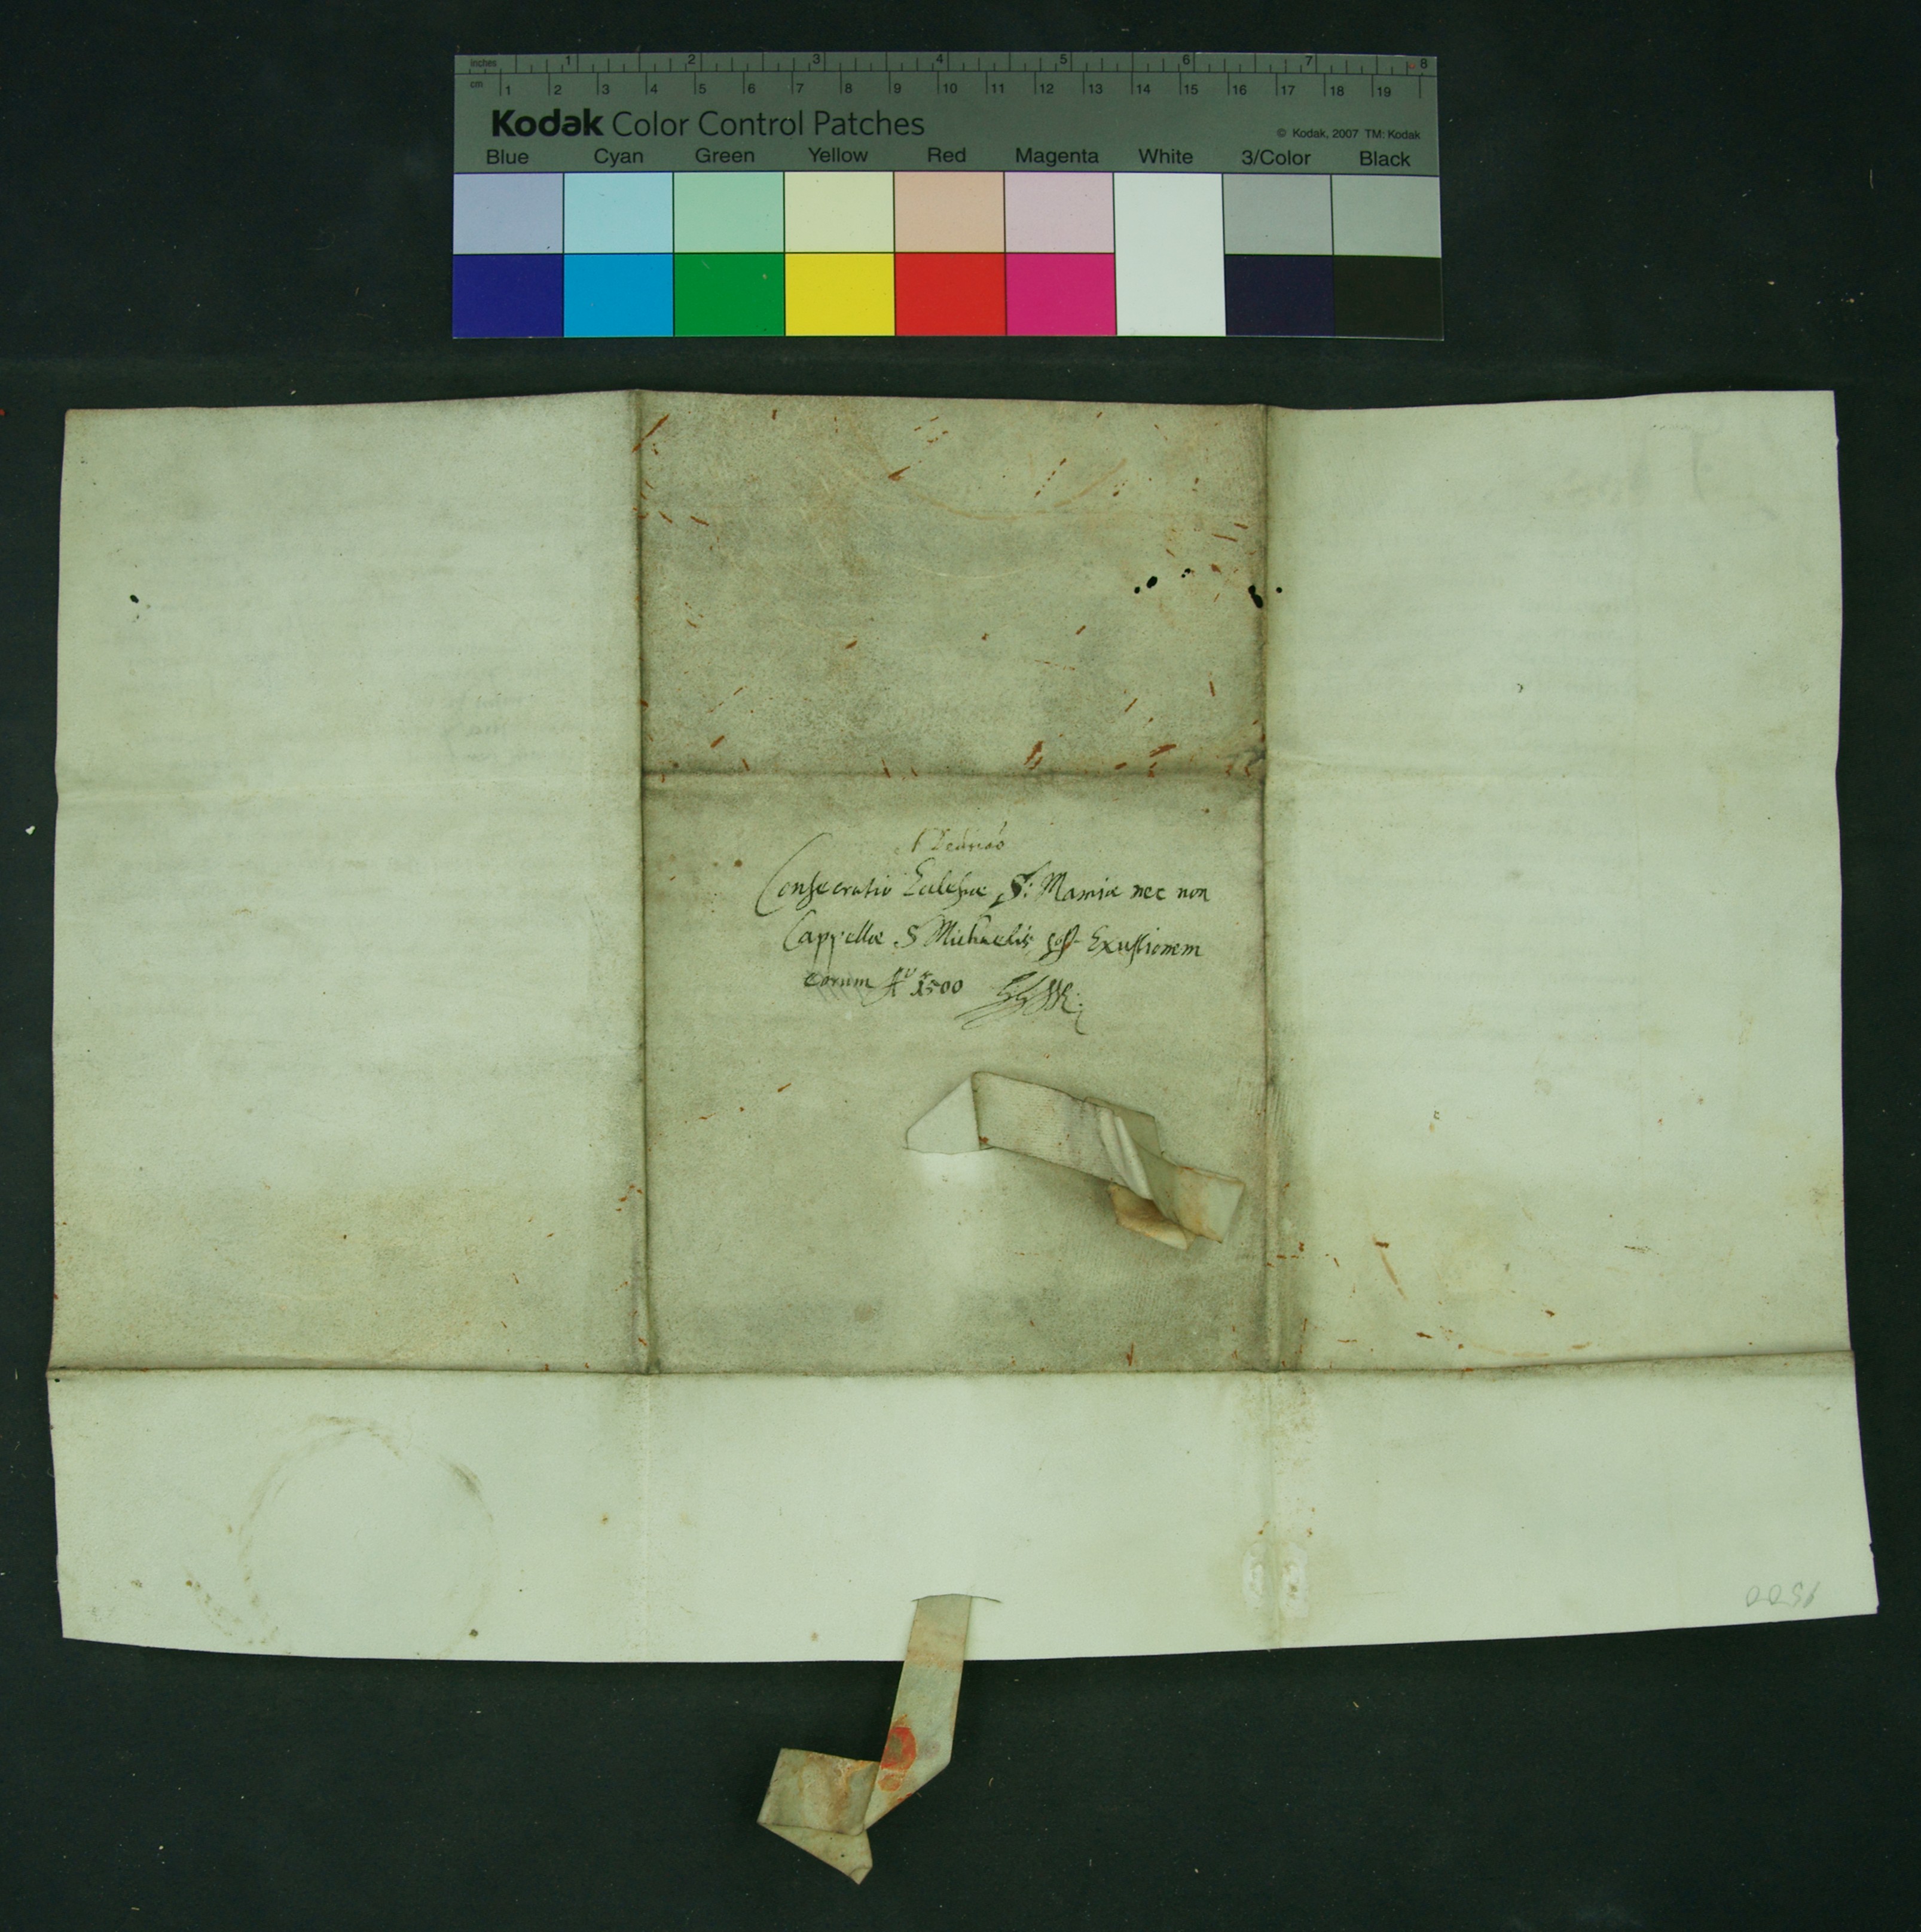 inches 1 2 3 4 5 6 7 8
cm 1 2 3 4 5 6 7 8 9 10 11 12 13 14 15 16 17 18 19
Kodak Color Control Patches
© Kodak, 2007 TM: Kodak
Blue Cyan Green Yellow Red Magenta White 3/Color Black
Consecratio Ecclesiæ S: Mariæ nec non
Cappellæ S Michaelis post Exustionem
eorum Aº 1500